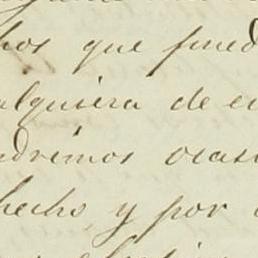 hos que pued
alquiera de e
ndremos ocas
hecho, y por